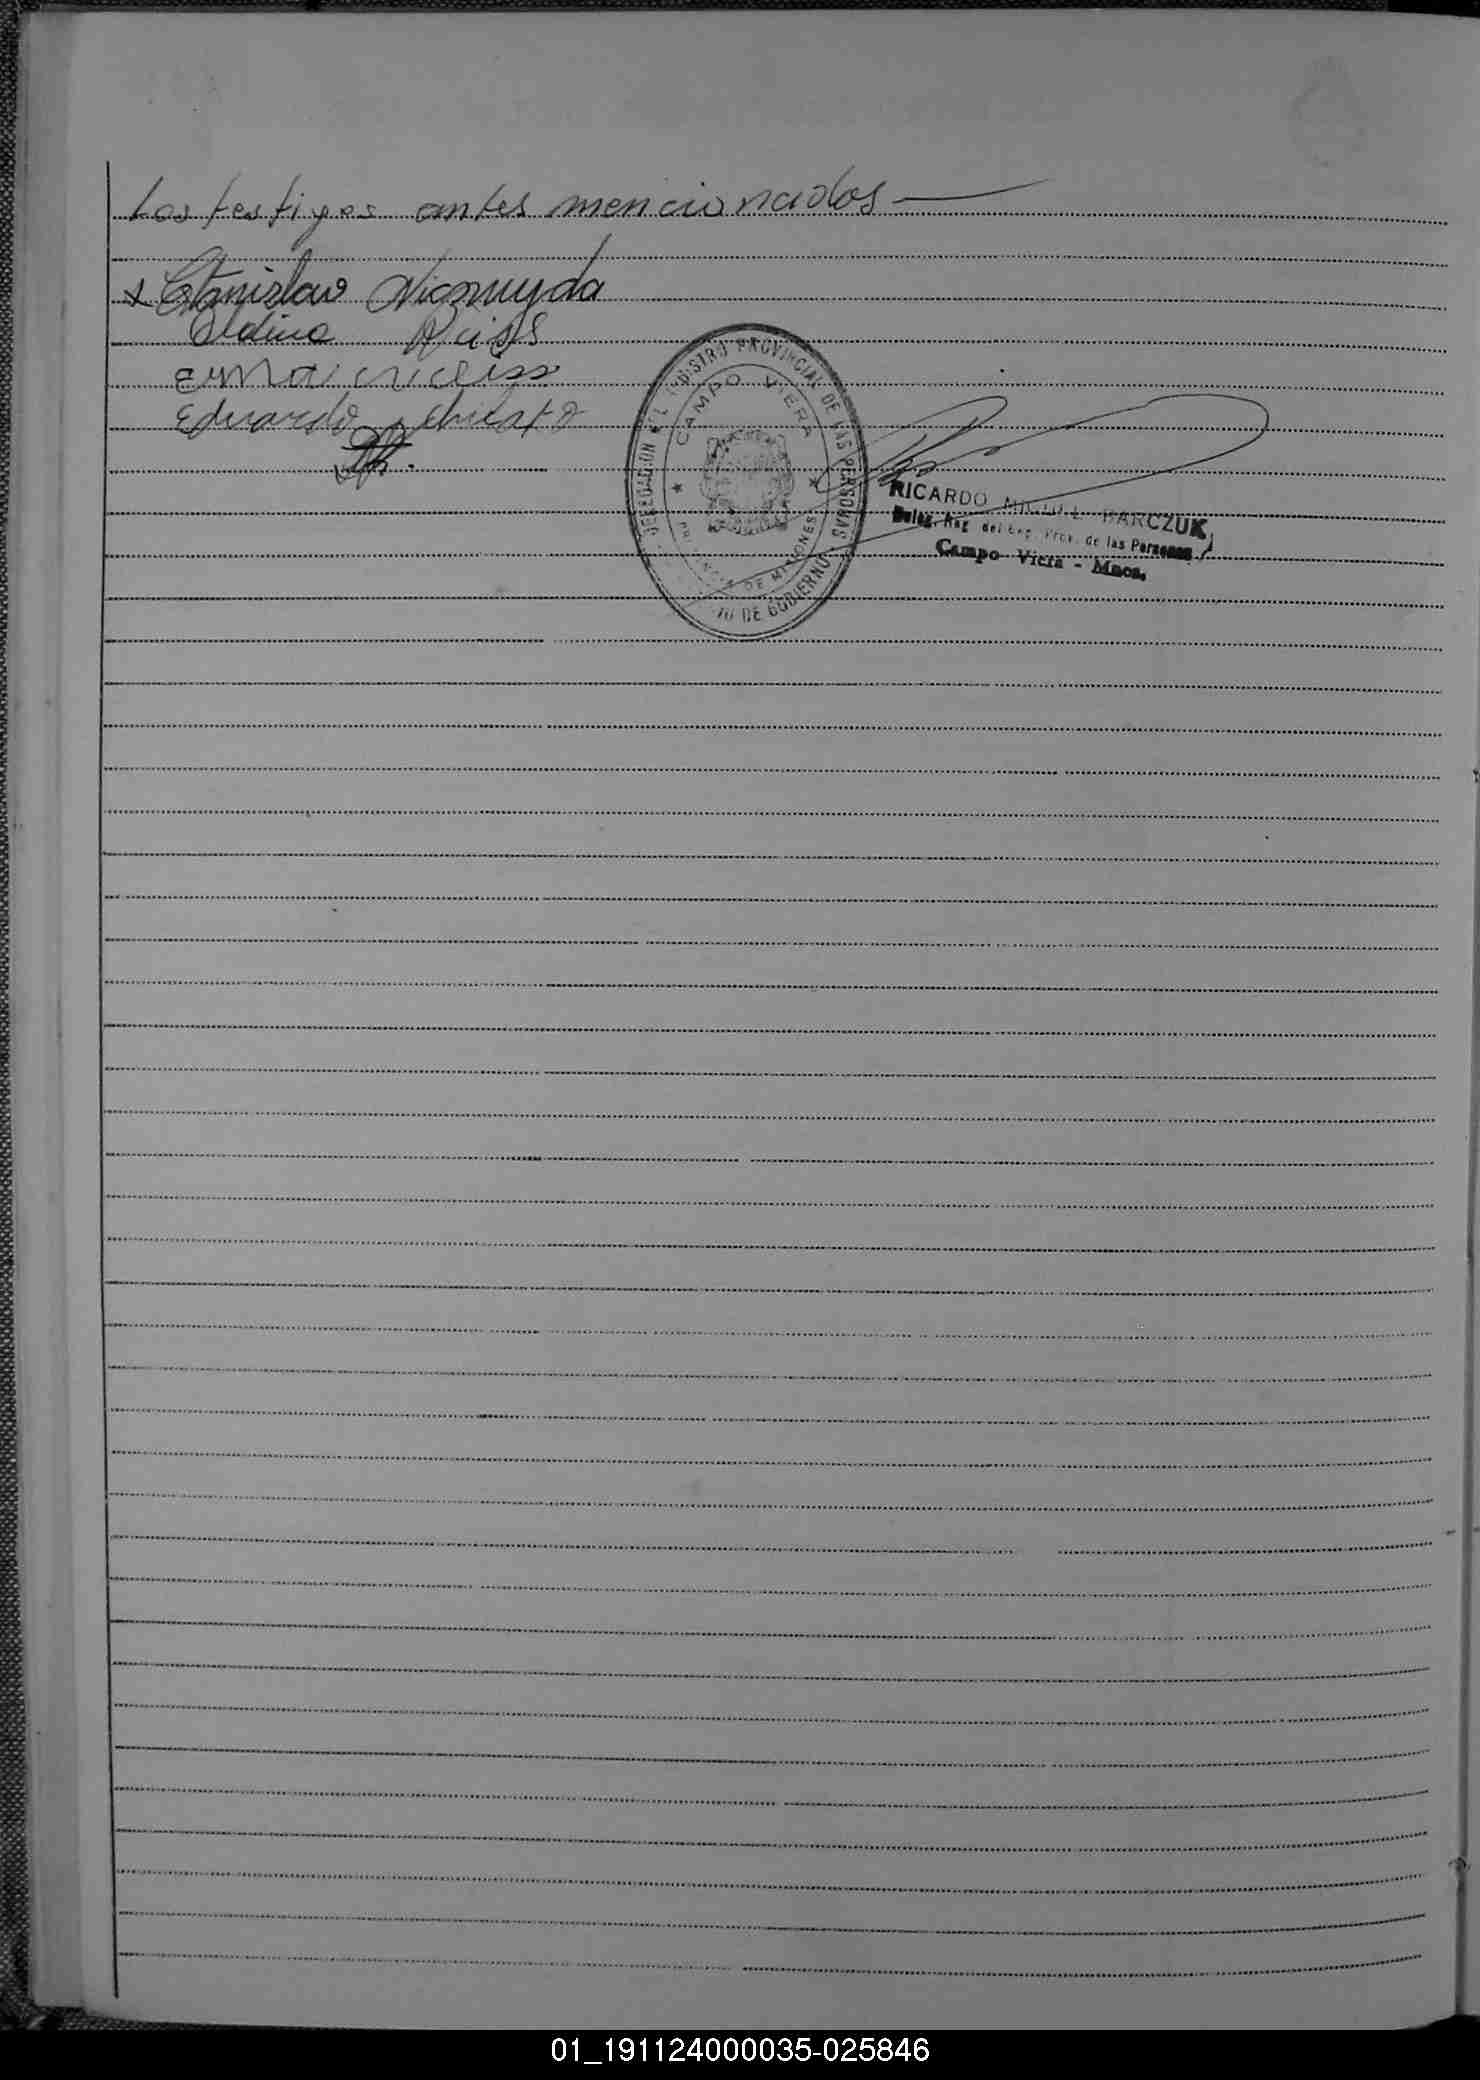 Los testigos antes mencionados
x Stanislao
Eldino Reiss
Eduardo
DELEGACION DEL REGISTRO PROVINCIAL DE LAS PERSONAS
CAMPO VIERA
PROVINCIA DE MISIONES
DE GOBIERNO
RICARDO MIGUEL PARCZUK
Deleg. Reg. del Reg. Prov. de las Personas
Campo Viera - Mnes.
01_191124000035-025846